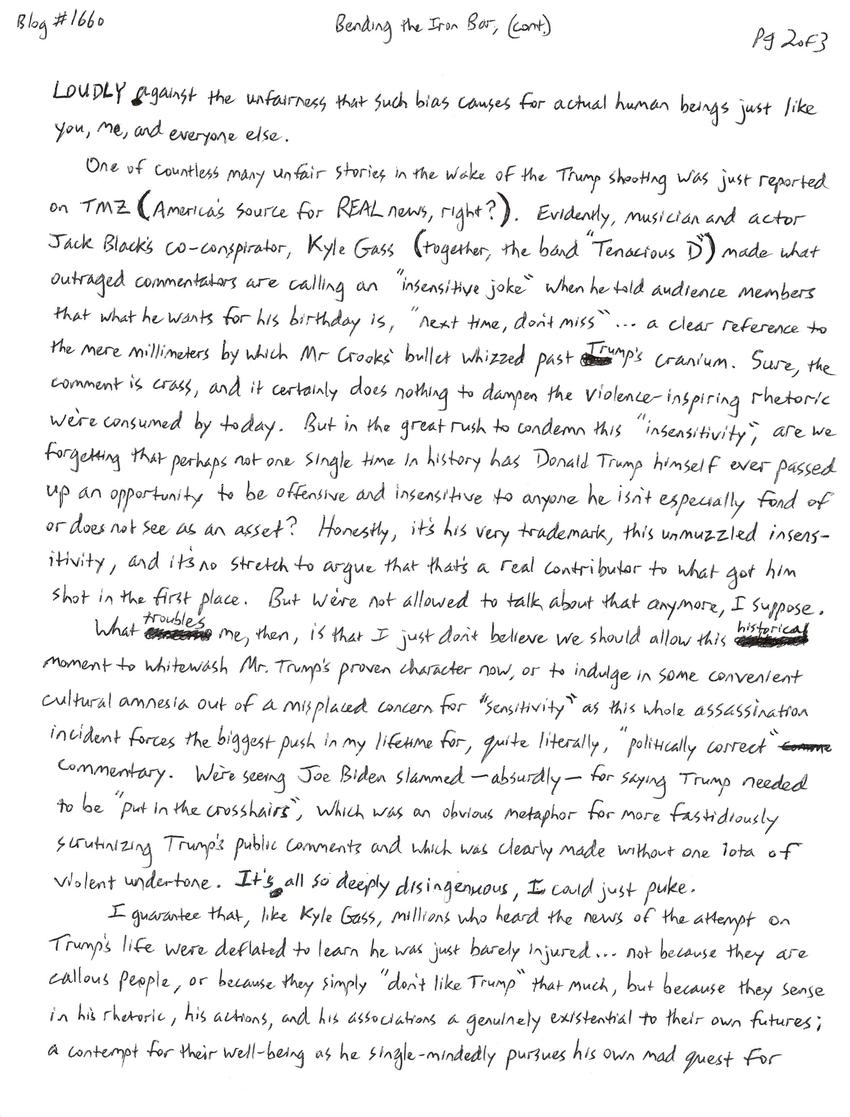 Blog #1660
Bending the Iron Bar, (cont.)
Pg 2 of 3
LOUDLY against the unfairness that such bias causes for actual human beings just like
you, me, and everyone else.
One of countless many unfair stories in the wake of the Trump shooting was just reported
on TMZ (America's source for REAL news, right?). Evidently, musician and actor
Jack Black's co-conspirator, Kyle Gass (together, the band "Tenacious D") made what
outraged commentators are calling an "insensitive joke" when he told audience members
that what he wants for his birthday is, "next time, don't miss"... a clear reference to
the mere millimeters by which Mr Crooks' bullet whizzed past Trump's cranium. Sure, the
comment is crass, and it certainly does nothing to dampen the violence-inspiring rhetoric
we're consumed by today. But in the great rush to condemn this "insensitivity", are we
forgetting that perhaps not one single time in history has Donald Trump himself ever passed
up an opportunity to be offensive and insensitive to anyone he isn't especially fond of
or does not see as an asset? Honestly, it's his very trademark, this unmuzzled insens-
itivity, and it's no stretch to argue that that's a real contributor to what got him
shot in the first place. But we're not allowed to talk about that anymore, I suppose.
What troubles me, then, is that I just don't believe we should allow this historical
moment to whitewash Mr. Trump's proven character now, or to indulge in some convenient
cultural amnesia out of a misplaced concern for "sensitivity" as this whole assassination
incident forces the biggest push in my lifetime for, quite literally, "politically correct" comme
commentary. We're seeing Joe Biden slammed — absurdly — for saying Trump needed
to be "put in the crosshairs", which was an obvious metaphor for more fastidiously
scrutinizing Trump's public comments and which was clearly made without one iota of
violent undertone. It's all so deeply disingenuous, I could just puke.
I guarantee that, like Kyle Gass, millions who heard the news of the attempt on
Trump's life were deflated to learn he was just barely injured... not because they are
callous people, or because they simply "don't like Trump" that much, but because they sense
in his rhetoric, his actions, and his associations a genuinely existential to their own futures;
a contempt for their well-being as he single-mindedly pursues his own mad quest for